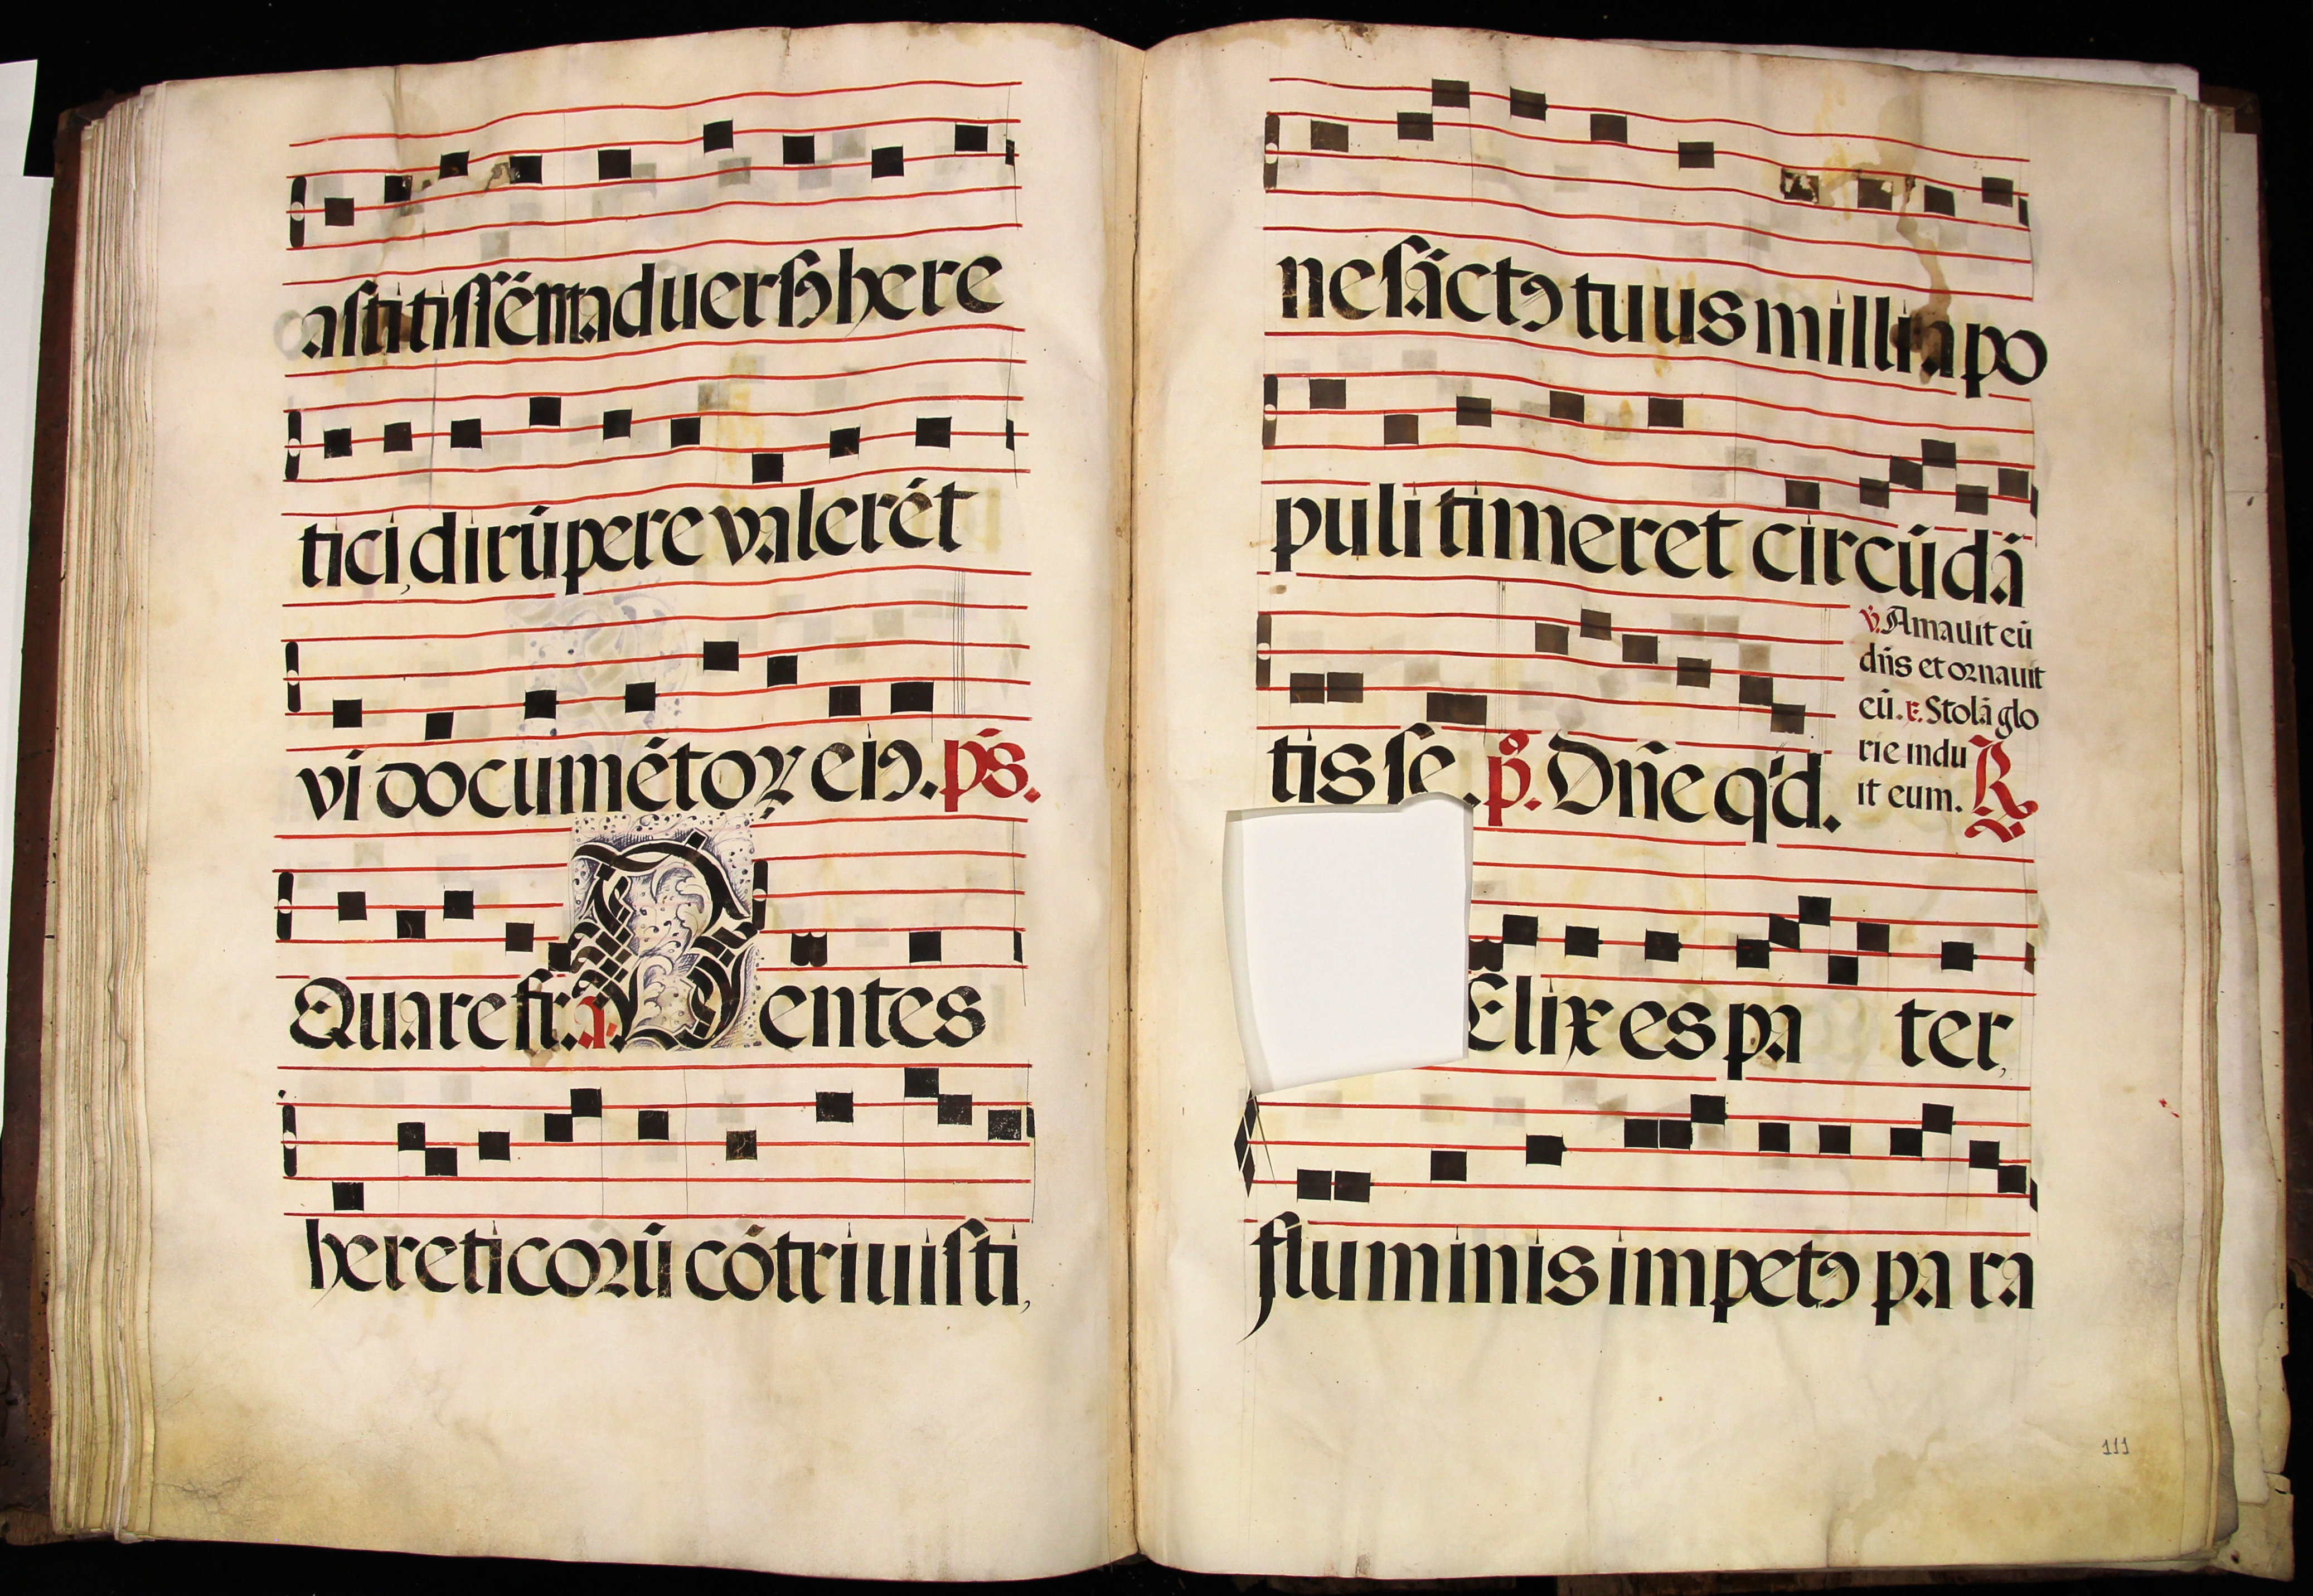 astitissēt aduersꝰ here
tici, dirūpere valerēt
vi documētoꝝ eiꝰ. p̄s.
Quare fr. a. Dentes
hereticorū cōtriuisti,
ne sāctꝰ tuus millia po
puli timeret circūdā
tis se. p̄. Dn̄e qd.
℣. Amauit eū
dn̄s et ornauit
eū. r. Stolā glo
rie indu
it eum. R
elix es pa ter,
fluminis impetꝰ pa ra
111